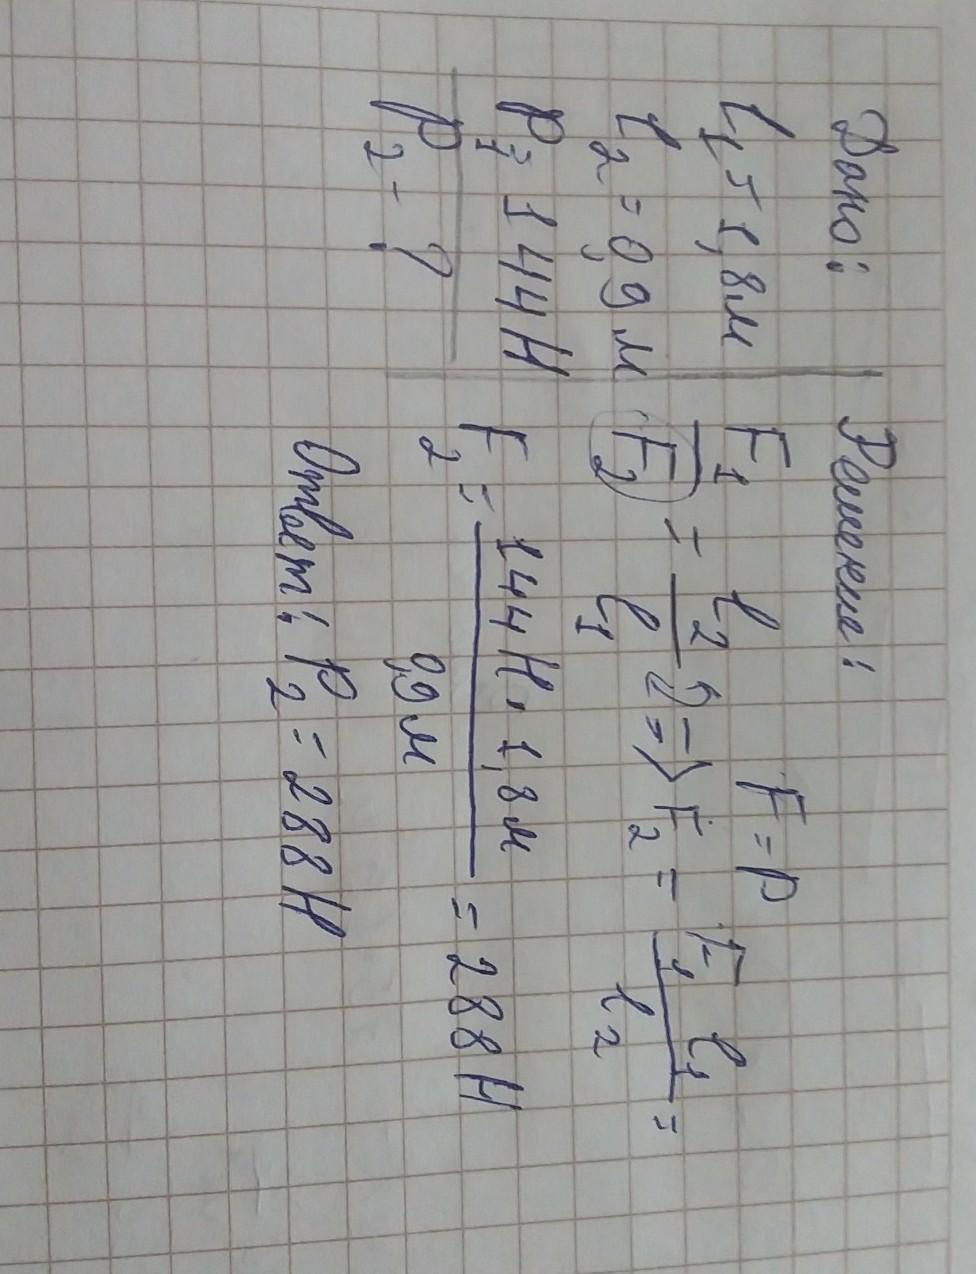 Дано:
l₁ = 1,8 м
l₂ = 0,9 м
P₁ = 144 Н
P₂ - ?
Решение:
F₁/F₂ = l₂/l₁ => F₂ = F₁ l₁/l₂ =
F = P
F₂ = 144 Н · 1,8 м/0,9 м = 288 Н
Ответ: P₂ = 288 Н